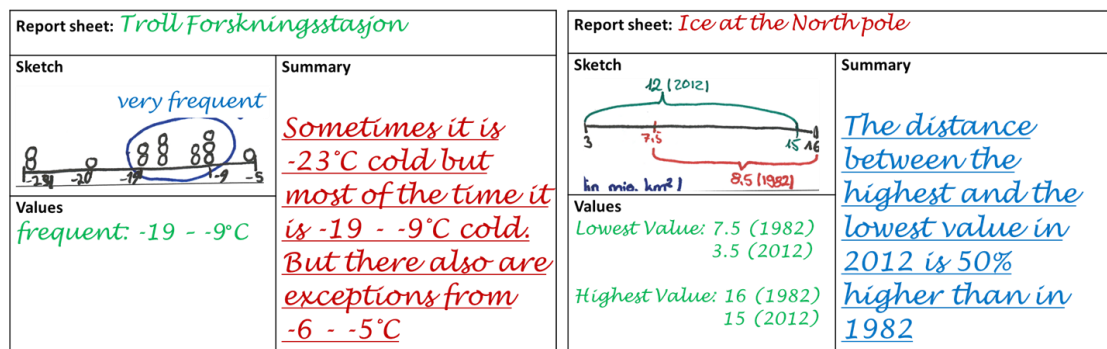 Report sheet: Troll Forskningsstasjon
Sketch
very frequent
-23
-20
-19
-9
-5
Values
frequent: -19 - -9°C
Summary
Sometimes it is
-23°C cold but
most of the time it
is -19 - -9°C cold.
But there also are
exceptions from
-6 - -5°C
Report sheet: Ice at the North pole
Sketch
12 (2012)
3
7.5
15
16
8.5 (1982)
(in mio. km²)
Values
Lowest Value: 7.5 (1982)
3.5 (2012)
Highest Value: 16 (1982)
15 (2012)
Summary
The distance
between the
highest and the
lowest value in
2012 is 50%
higher than in
1982